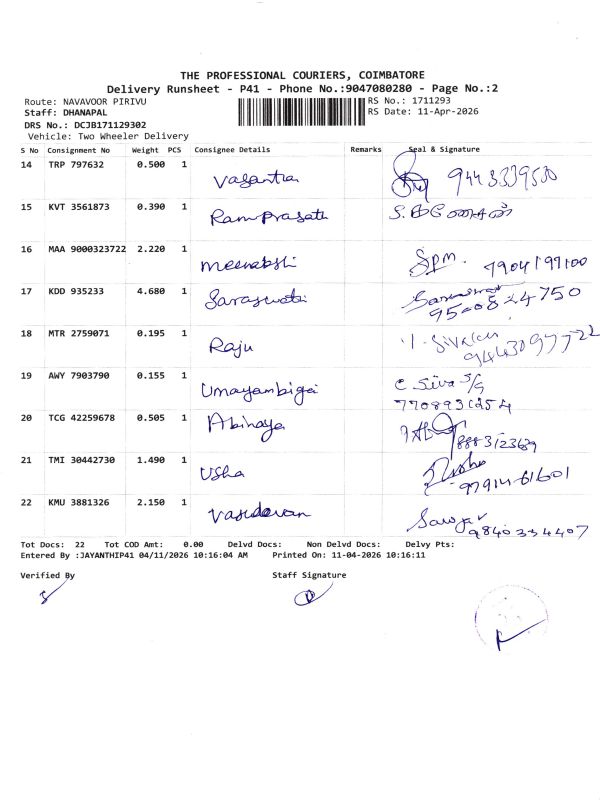 THE PROFESSIONAL COURIERS, COIMBATORE
Delivery Runsheet - P41 - Phone No.:9047080280 - Page No.:2
Route: NAVAVOOR PIRIVU
RS No.: 1711293
Staff: DHANAPAL
RS Date: 11-Apr-2026
DRS No.: DCJB171129302
Vehicle: Two Wheeler Delivery
S No Consignment No Weight PCS Consignee Details Remarks Seal & Signature
14 TRP 797632 0.500 1 Vasantha
15 KVT 3561873 0.390 1 Ramprasath
16 MAA 9000323722 2.220 1 meenakshi Spm. 7904197100
17 KDD 935233 4.680 1 Saraswathi
9500824750
18 MTR 2759071 0.195 1 Raju
9443097722
19 AWY 7903790 0.155 1 Umayambigai C Siva S/G
7708931254
20 TCG 42259678 0.505 1 Abinaya
21 TMI 30442730 1.490 1 Usha
9791461601
22 KMU 3881326 2.150 1 Vasudevan
9840334407
Tot Docs: 22 Tot COD Amt: 0.00 Delvd Docs: Non Delvd Docs: Delvy Pts:
Entered By :JAYANTHIP41 04/11/2026 10:16:04 AM Printed On: 11-04-2026 10:16:11
Verified By Staff Signature